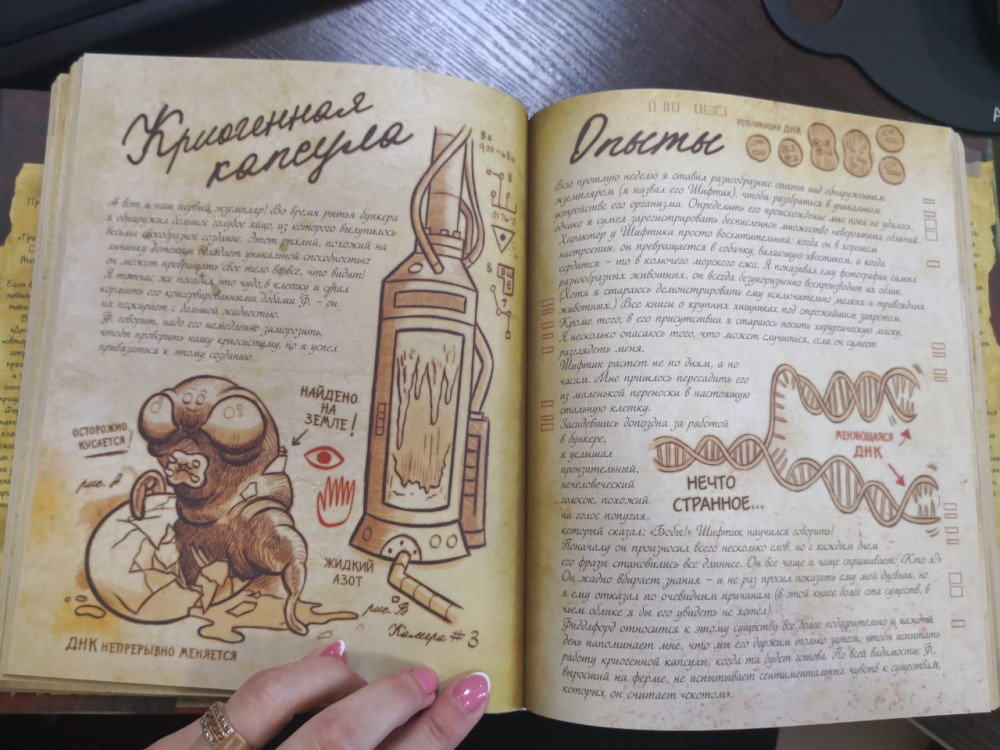 Криогенная
капсула
А вот и нам первый экземпляр! Во время рытья бункера
я обнаружил большое голубое яйцо, из которого вылупилось
весьма своеобразное создание. Этот дохлай, похожий на
личинку детеныш обладает уникальной способностью:
он может превращать свое тело во все, что видит!
Я тотчас же посадил это чудо в клетку и стал
кормить его консервированными бобами Ф. – он
их пожирает с большой жадностью.
Ф. говорит, надо его немедленно заморозить,
чтобы проверить нашу криосистему, но я успел
привязаться к этому созданию...
ОСТОРОЖНО,
КУСАЕТСЯ!
рис. А
НАЙДЕНО
НА
ЗЕМЛЕ!
ЖИДКИЙ
АЗОТ
рис. В
Камера # 3
ДНК НЕПРЕРЫВНО МЕНЯЕТСЯ
Опыты
ДНК
Всю прошлую неделю я ставил разнообразные опыты над обнаруженным
экземпляром (я назвал его Шифтик), чтобы разобраться в уникальном
устройстве его организма. Определить его происхождение мне пока не удалось,
однако я сумел зарегистрировать бесчисленное множество невероятных обличий.
Характер у Шифтика просто восхитительный: когда он в хорошем
настроении, он превращается в собачку, виляющую хвостиком, а когда
сердится – то в колючего морского ежа. Я показывал ему фотографии самых
разнообразных животных, он всегда безукоризненно воспроизводит их облик.
(Хотя я стараюсь демонстрировать ему исключительно мелких и травоядных
животных.) Все книги о крупных хищниках под строжайшим запретом.
Кроме того, в его присутствии я стараюсь носить хирургическую маску.
Я несколько опасаюсь того, что может случиться, если он сумеет
разглядеть меня.
Шифтик растет не по дням, а по
часам. Мне пришлось пересадить его
из маленькой переноски в настоящую
стальную клетку.
Засидевшись допоздна за работой
в бункере,
я услышал
пронзительный,
нечеловеческий
голосок, похожий
на голос попугая,
который сказал: «Бобы!» Шифтик научился говорить!
МЕНЯЮЩАЯСЯ
ДНК
НЕЧТО
СТРАННОЕ...
Поначалу он произносил всего несколько слов, но с каждым днем
его фразы становились все длиннее. Он все чаще и чаще спрашивает: «Кто я?»
Он жадно вбирает знания – и не раз просил показать ему мой дневник, но
я ему отказал по очевидным причинам (в этой книге более ста существ, в
чьем облике я бы его увидеть не хотел).
Фиддлфорд относится к этому существу все более подозрительно и каждый
день напоминает мне, что мы его держим только затем, чтобы испытать
работу криогенной капсулы, когда та будет готова. По всей видимости, Ф.,
выросший на ферме, не испытывает сентиментальных чувств к существам,
которых он считает «скотом».